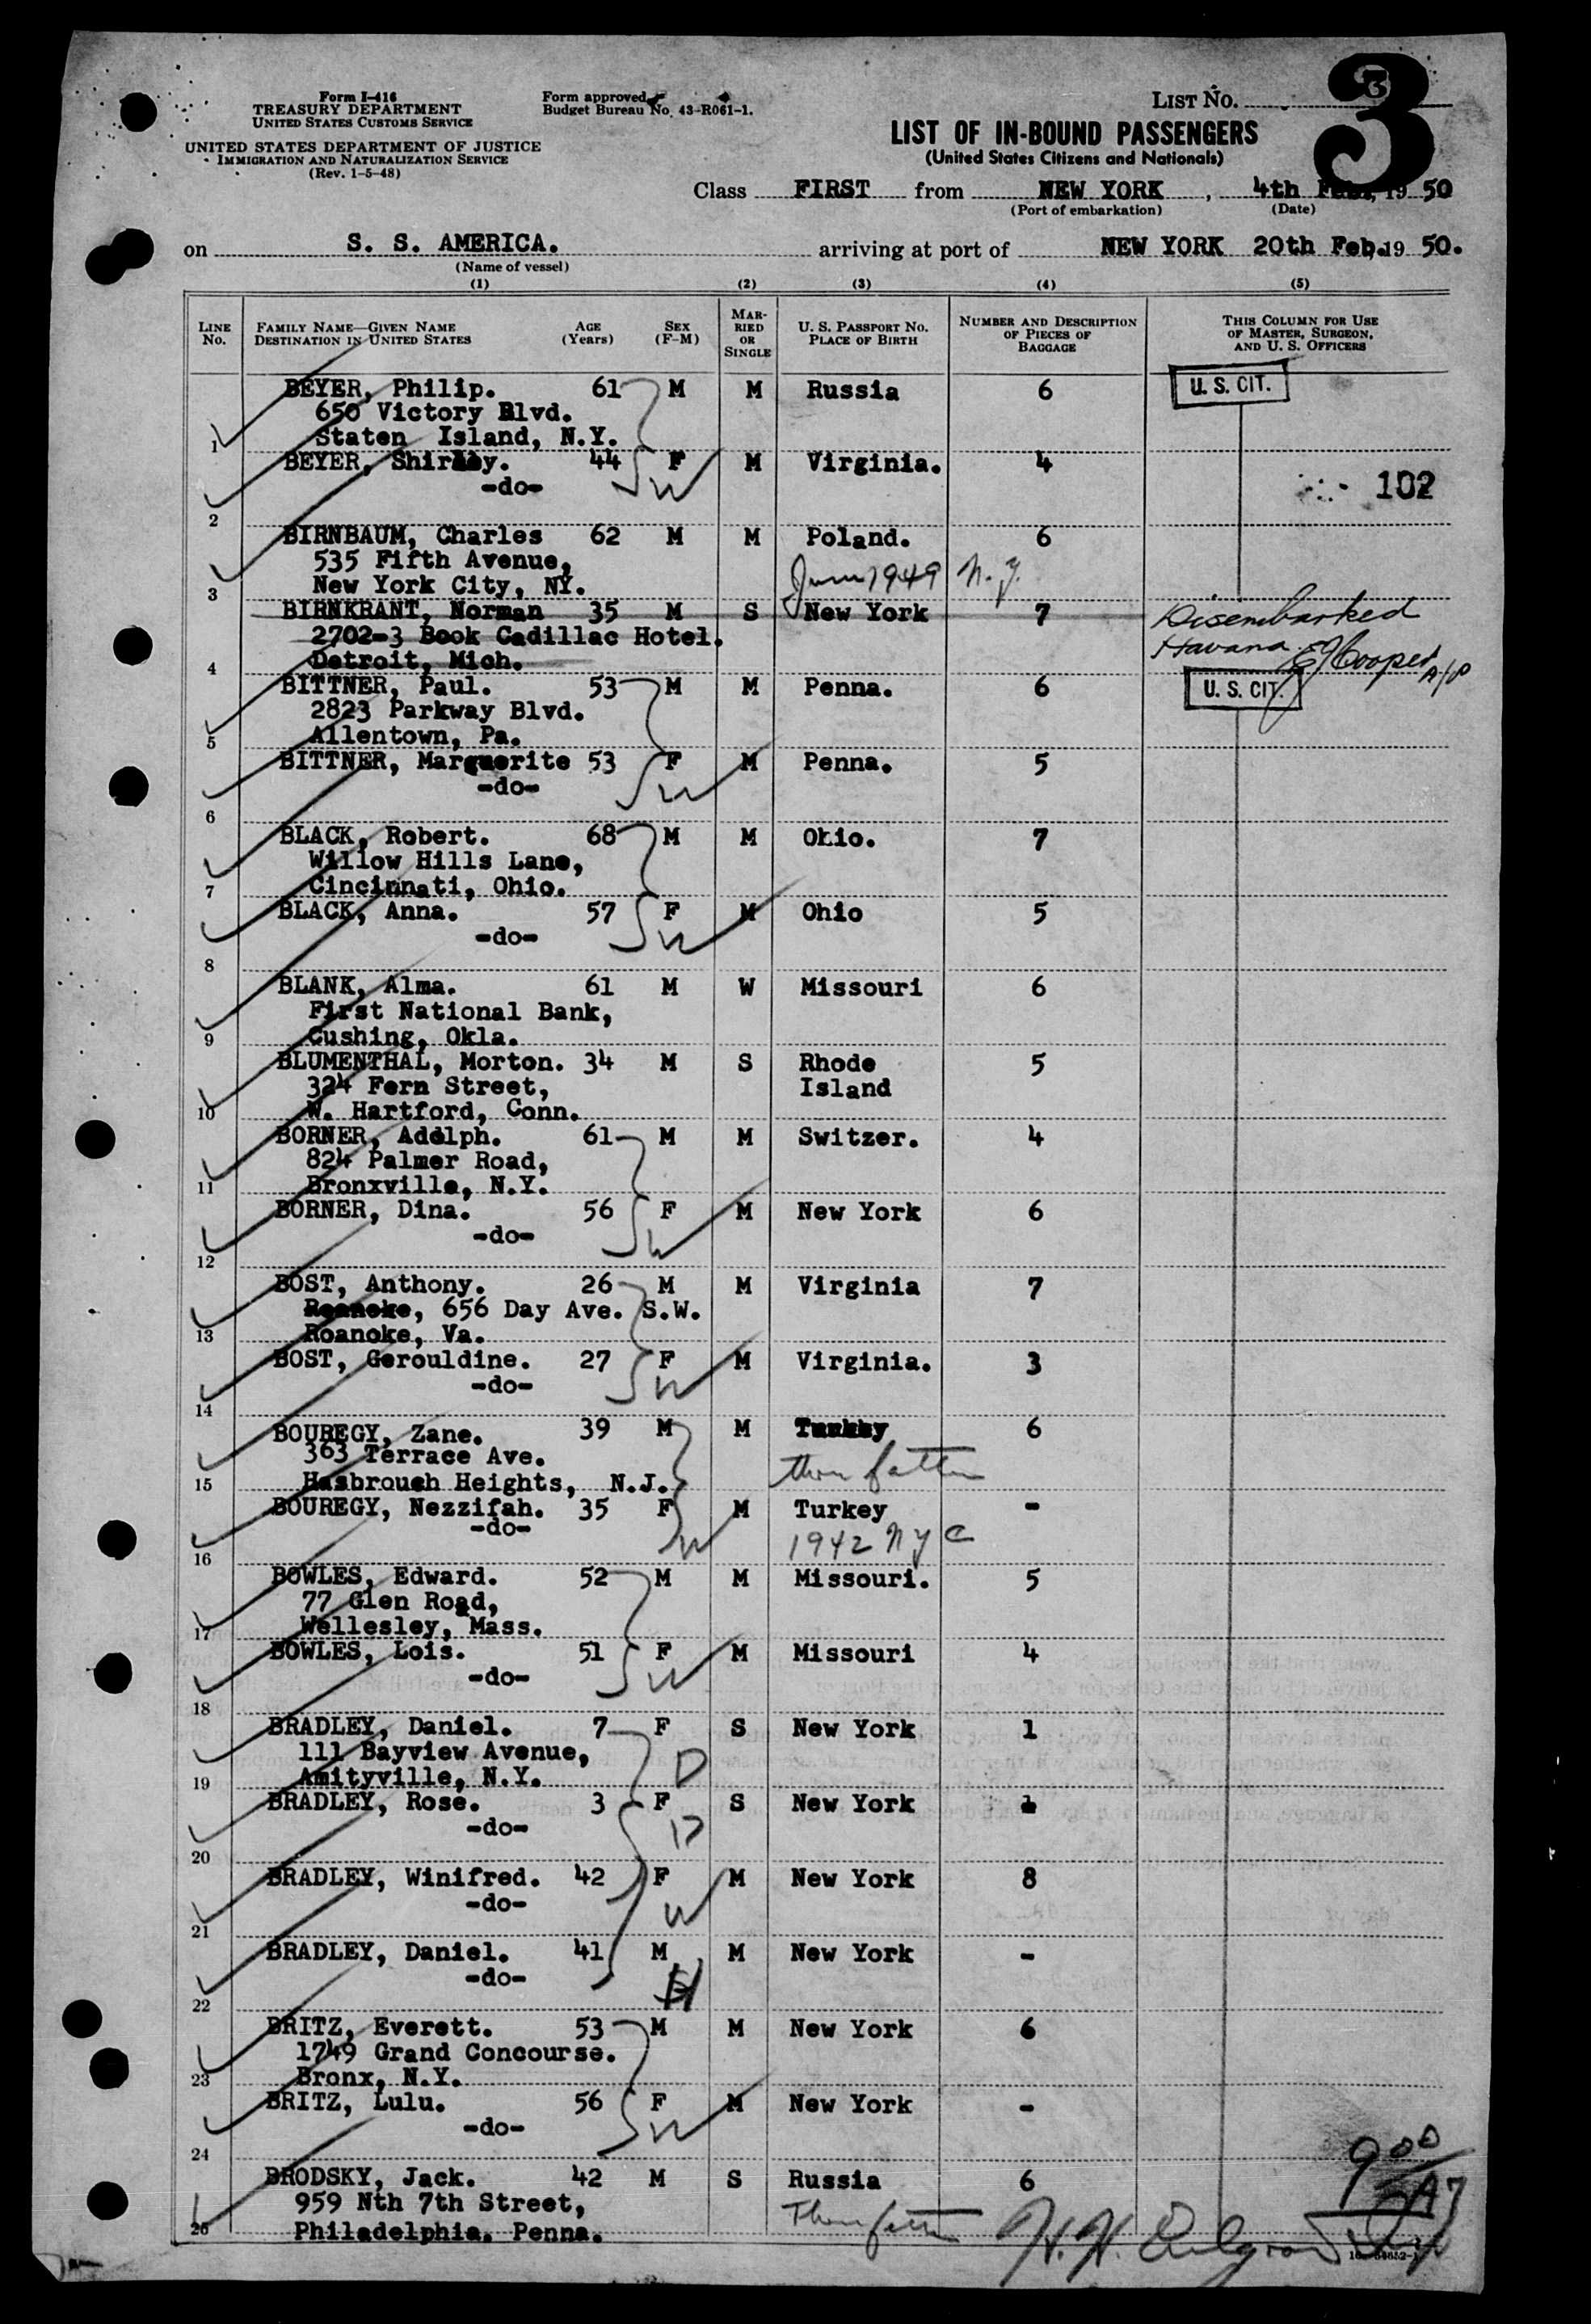 Form I-416
TREASURY DEPARTMENT
UNITED STATES CUSTOMS SERVICE
UNITED STATES DEPARTMENT OF JUSTICE
IMMIGRATION AND NATURALIZATION SERVICE
(Rev. 1-5-48)
Form approved
Budget Bureau No. 43-R061-1.
LIST NO. 3
3
LIST OF IN-BOUND PASSENGERS
(United States Citizens and Nationals)
Class FIRST from NEW YORK, 4th Feb., 19 50
(Port of embarkation) (Date)
on S. S. AMERICA. arriving at port of NEW YORK 20th Feb. 19 50.
(Name of vessel)
(1) (2) (3) (4) (5)
LINE No. FAMILY NAME—GIVEN NAME DESTINATION IN UNITED STATES AGE (Years) SEX (F-M) MARRIED OR SINGLE U. S. PASSPORT NO. PLACE OF BIRTH NUMBER AND DESCRIPTION OF PIECES OF BAGGAGE THIS COLUMN FOR USE OF MASTER, SURGEON, AND U. S. OFFICERS
BEYER, Philip. 61 M M Russia 6 U. S. CIT.
650 Victory Blvd.
1 Staten Island, N.Y.
BEYER, Shirley. 44 F M Virginia. 4
-do- W 102
2
BIRNBAUM, Charles 62 M M Poland. 6
535 Fifth Avenue,
3 New York City, NY. June 1949 N.Y.
BIRNKRANT, Norman 35 M S New York 7 Disembarked
2702-3 Book Cadillac Hotel. Havana
4 Detroit, Mich. EJ Cooper A/P
BITTNER, Paul. 53 M M Penna. 6 U. S. CIT.
2823 Parkway Blvd.
5 Allentown, Pa.
BITTNER, Marguerite 53 F M Penna. 5
-do- W
6
BLACK, Robert. 68 M M Ohio. 7
Willow Hills Lane,
7 Cincinnati, Ohio.
BLACK, Anna. 57 F M Ohio 5
-do- W
8
BLANK, Alma. 61 M W Missouri 6
First National Bank,
9 Cushing, Okla.
BLUMENTHAL, Morton. 34 M S Rhode 5
324 Fern Street, Island
10 W. Hartford, Conn.
BORNER, Adolph. 61 M M Switzer. 4
824 Palmer Road,
11 Bronxville, N.Y.
BORNER, Dina. 56 F M New York 6
-do- W
12
BOST, Anthony. 26 M M Virginia 7
Roanoke, 656 Day Ave. S.W.
13 Roanoke, Va.
BOST, Gerouldine. 27 F M Virginia. 3
-do- W
14
BOUREGY, Zane. 39 M M Turkey 6
363 Terrace Ave. thru father
15 Hasbrough Heights, N.J.
BOUREGY, Nezzifah. 35 F M Turkey -
-do- W 1942 N Y C
16
BOWLES, Edward. 52 M M Missouri. 5
77 Glen Road,
17 Wellesley, Mass.
BOWLES, Lois. 51 F M Missouri 4
-do- W
18
BRADLEY, Daniel. 7 F S New York 1
111 Bayview Avenue, D
19 Amityville, N.Y.
BRADLEY, Rose. 3 F S New York 1
-do- D
20
BRADLEY, Winifred. 42 F M New York 8
-do- W
21
BRADLEY, Daniel. 41 M M New York -
-do- H
22
BRITZ, Everett. 53 M M New York 6
1749 Grand Concourse.
23 Bronx, N.Y.
BRITZ, Lulu. 56 F M New York -
-do- W
24 9 00
BRODSKY, Jack. 42 M S Russia 6
959 Nth 7th Street, Thru father
25 Philadelphia, Penna. H. H.